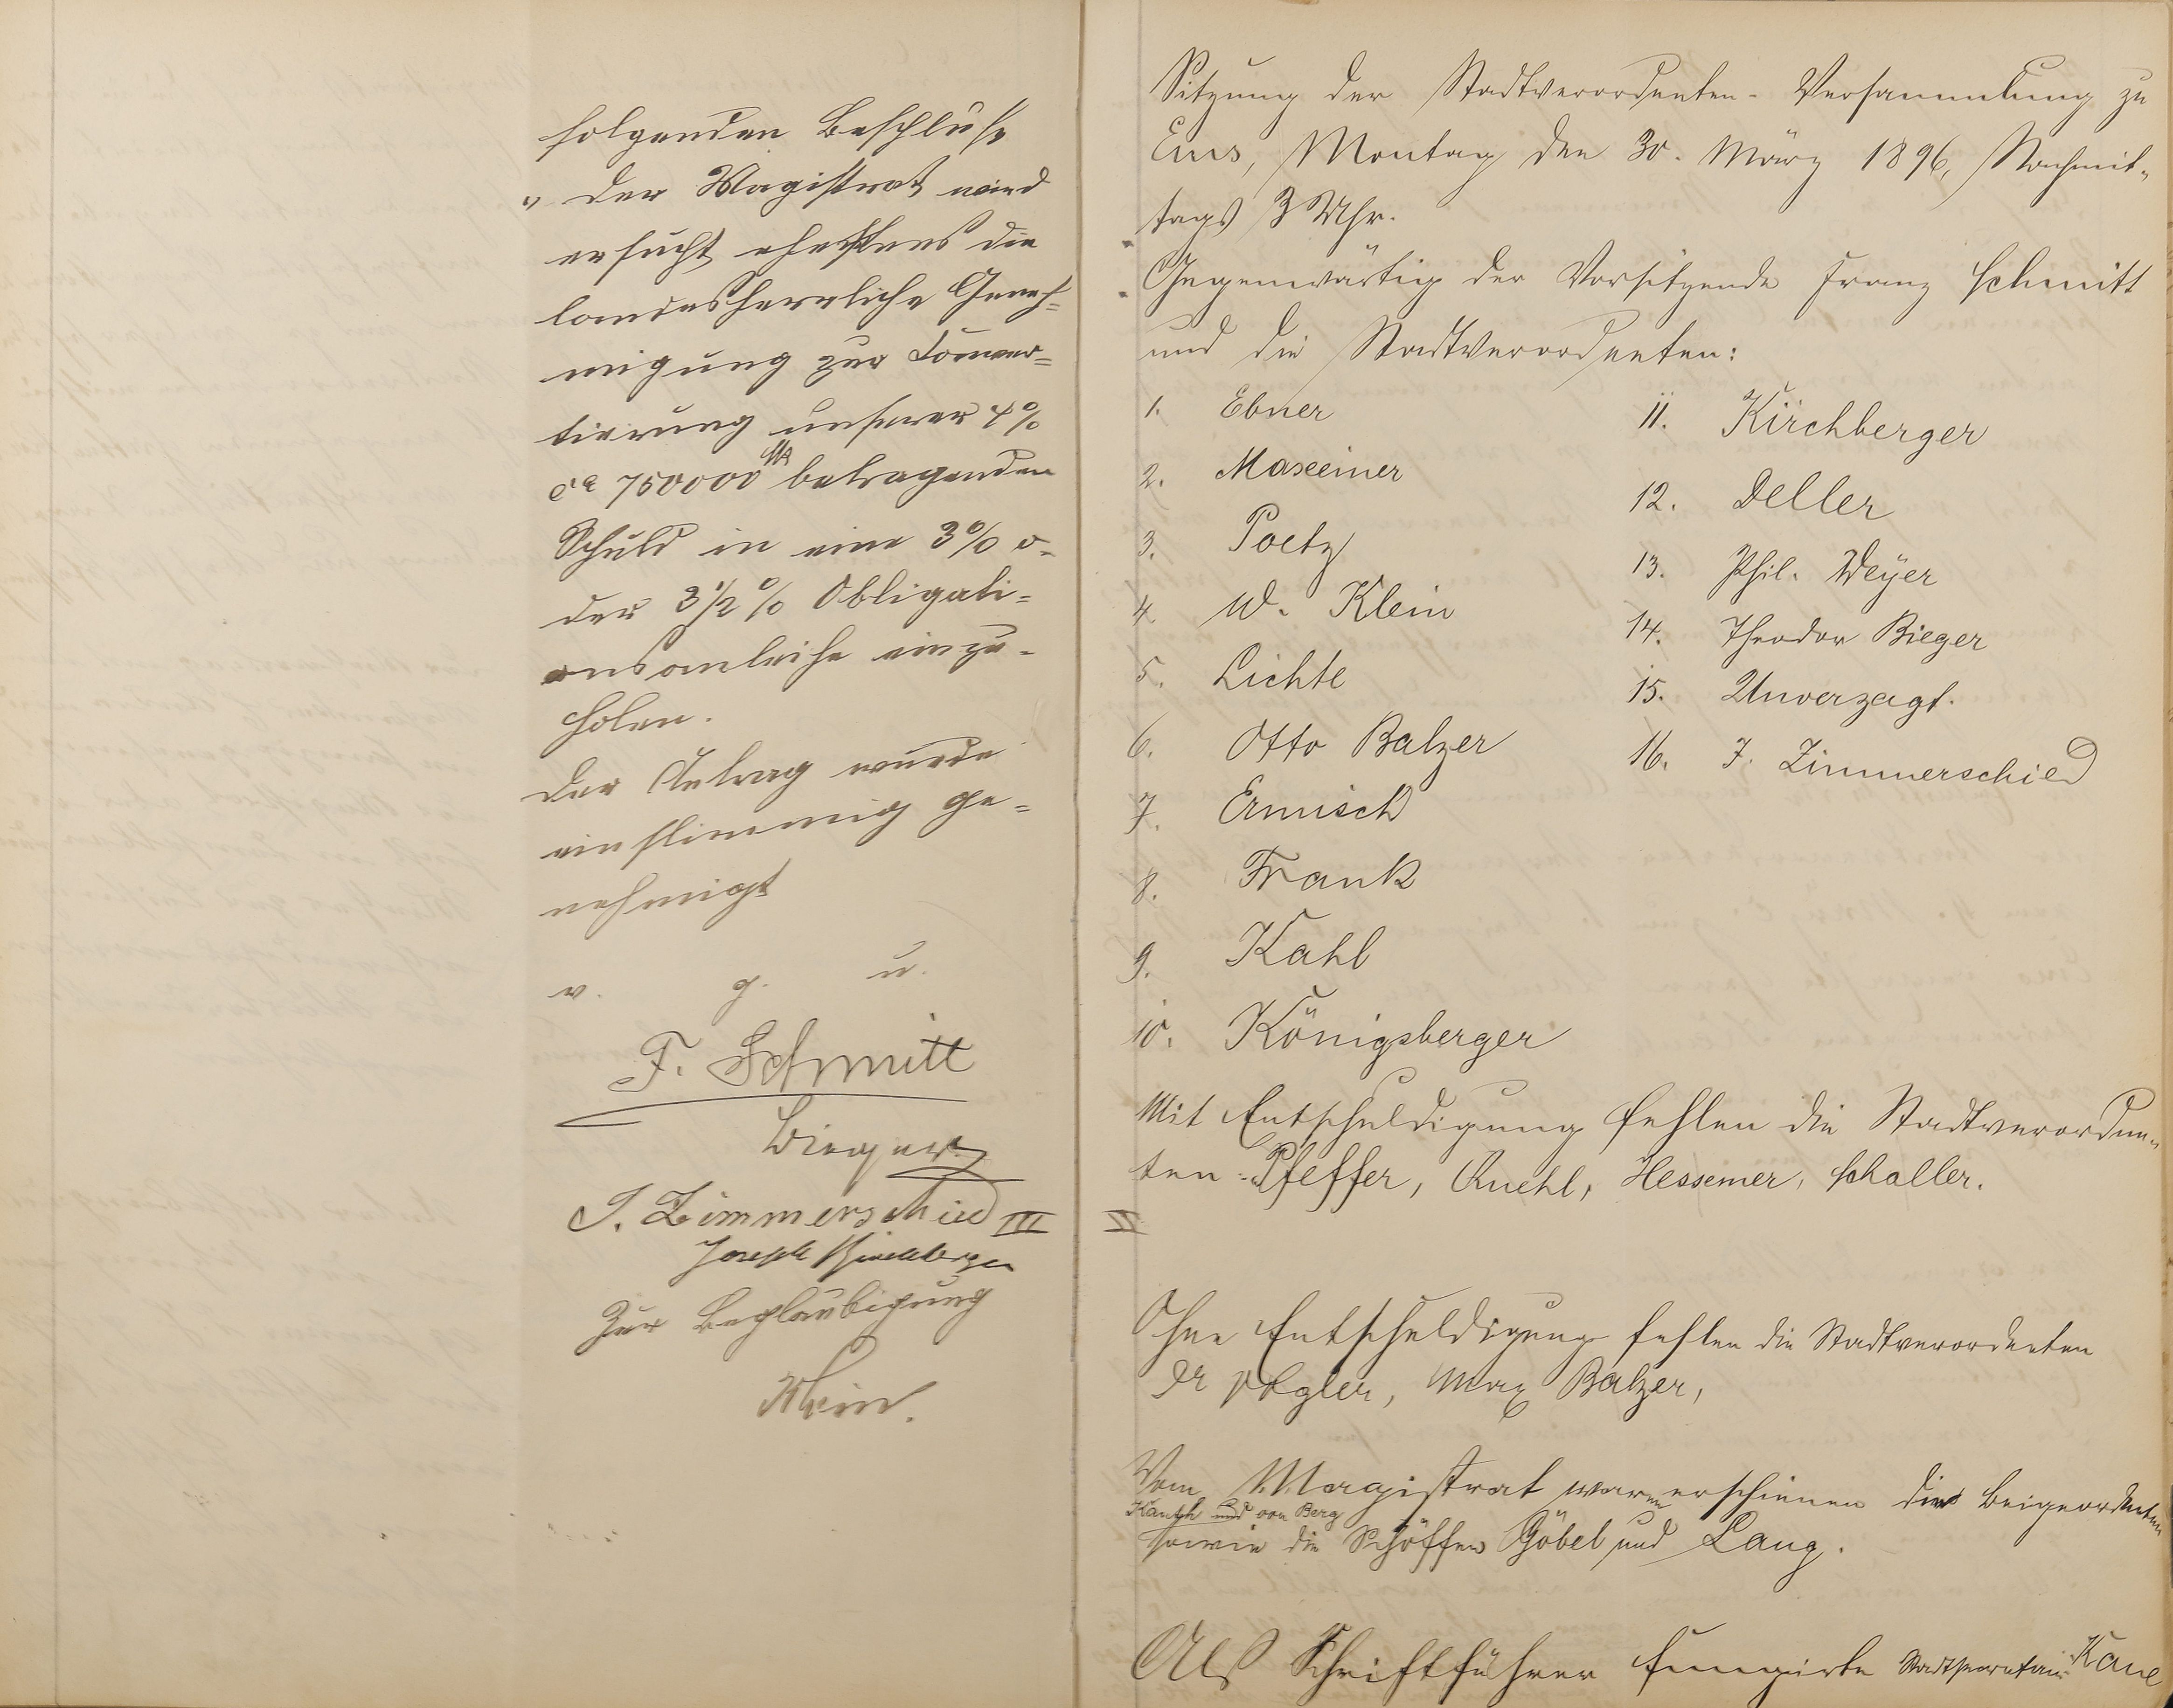 folgenden Beschluß
„ Der Magistrat wird
ersucht ehestens die
landesherrliche Geneh=
migung zur Conver=
tierung unserer 4%
ca 750000 M betragenden
Schuld in eine 3% o-
der 3 1/2 % Obligati=
onsanleihe einzu-
holen.
Der Antrag wurde
einstimmig ge=
nehmigt
v. g. u.
F. Schmitt
Bieger
J. Zimmerschied III
Joseph Kirchberger
Zur Beglaubigung
Klein.
Sitzung der Stadtverordneten-Versammlung zu
Ems, Montag den 30. März 1896, Nachmit-
tags 3 Uhr.
Gegenwärtig der Vorsitzende Franz Schmitt
und die Stadtverordneten:
1. Ebner
2. Maxeiner
3. Poetz
4. W. Klein
5. Lichte
6. Otto Balzer
7. Ermisch
8. Frank
9. Kahl
10. Königsberger
11. Kirchberger
12. Deller
13. Phil. Weyer
14. Theodor Bieger
15. Unverzagt.
16. J. Zimmerschied
Mit Entschuldigung fehlen die Stadtverordne-
ten: Pfeffer, Ruehl, Hessemer, Schaller.
Ohne Entschuldigung fehlen die Stadtverordneten
Dr Vogler, Max Balzer,
Vom Magistrat waren erschienen die Beigeordneten
und von Berg
sowie die Schöffen Göbel und Lang.
Als Schriftführer fungirte Stadtsecretair Kaul